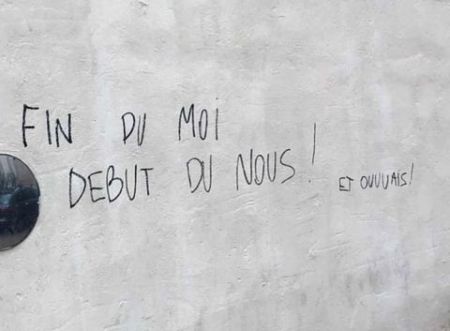 FIN DU MOI
DEBUT DU NOUS !
ET OUUUAIS !